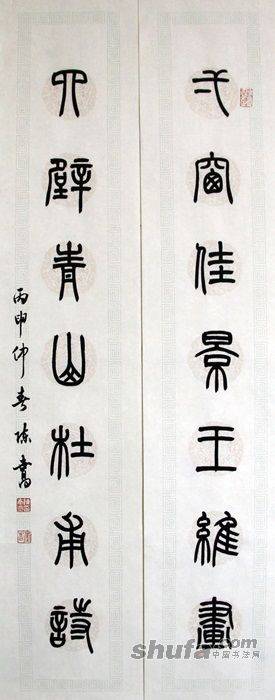 弌窗佳景王維畫
四壁青山杜甫詩
丙申仲春
shufa.com
中国书法网